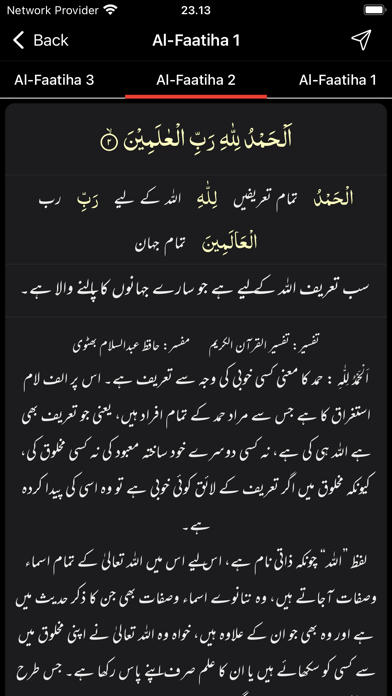 Network Provider 23.13
Back Al-Faatiha 1
Al-Faatiha 3 Al-Faatiha 2 Al-Faatiha 1
اَلْحَمْدُ لِلّٰهِ رَبِّ الْعٰلَمِيْنَ ۝۲
الْحَمْدُ تمام تعریفیں لِلّٰهِ اللہ کے لیے رَبِّ رب
الْعَالَمِينَ تمام جہان
سب تعریف اللہ کے لیے ہے جو سارے جہانوں کا پالنے والا ہے۔
تفسیر: تفسیر القرآن الکریم مفسر: حافظ عبدالسلام بھٹوی
اَلْحَمْدُ لِلّٰهِ : حمد کا معنی کسی خوبی کی وجہ سے تعریف ہے۔ اس پر الف لام
استغراق کا ہے جس سے مراد حمد کے تمام افراد ہیں، یعنی جو تعریف بھی
ہے اللہ ہی کی ہے، نہ کسی دوسرے خود ساختہ معبود کی نہ کسی مخلوق کی،
کیونکہ مخلوق میں اگر تعریف کے لائق کوئی خوبی ہے تو وہ اسی کی پیدا کردہ
ہے۔
لفظ ”اللہ“ چونکہ ذاتی نام ہے، اس لیے اس میں اللہ تعالیٰ کے تمام اسماء
وصفات آجاتے ہیں، وہ ننانوے اسماء وصفات بھی جن کا ذکر حدیث میں
ہے اور وہ بھی جو ان کے علاوہ ہیں، خواہ وہ اللہ تعالیٰ نے اپنی مخلوق میں
سے کسی کو سکھائے ہیں یا ان کا علم صرف اپنے پاس رکھا ہے۔ جس طرح